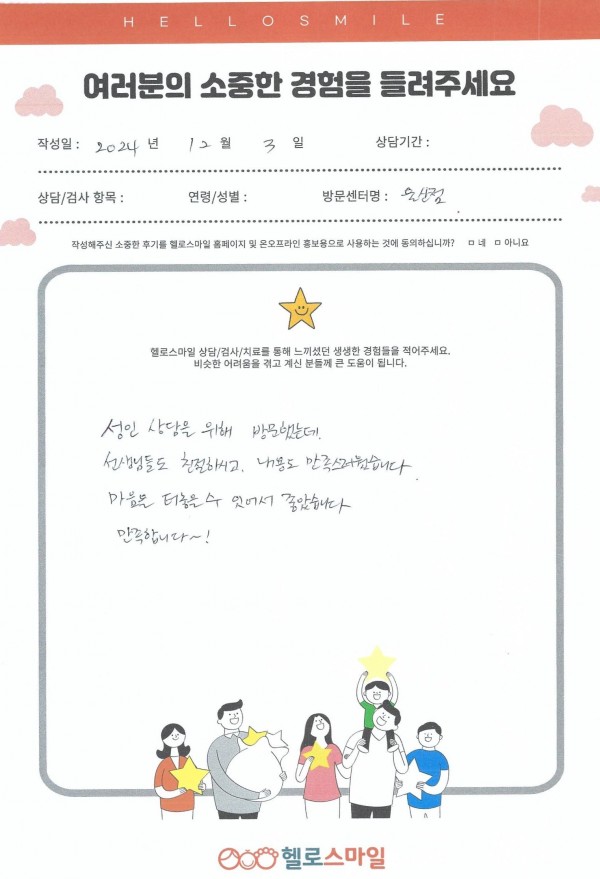 HELLOSMILE
여러분의 소중한 경험을 들려주세요
작성일 : 2024 년 12 월 3 일 상담기간 :
상담/검사 항목 : 연령/성별 : 방문센터명 :
작성해주신 소중한 후기를 헬로스마일 홈페이지 및 온오프라인 홍보용으로 사용하는 것에 동의하십니까? ㅁ 네 ㅁ 아니요
헬로스마일 상담/검사/치료를 통해 느끼셨던 생생한 경험들을 적어주세요.
비슷한 어려움을 겪고 계신 분들께 큰 도움이 됩니다.
성인 상담을 위해 방문했는데.
선생님들도 친절하시고. 내용도 만족스러웠습니다.
마음을 터놓을 수 있어서 좋았습니다
만족합니다~!
헬로스마일